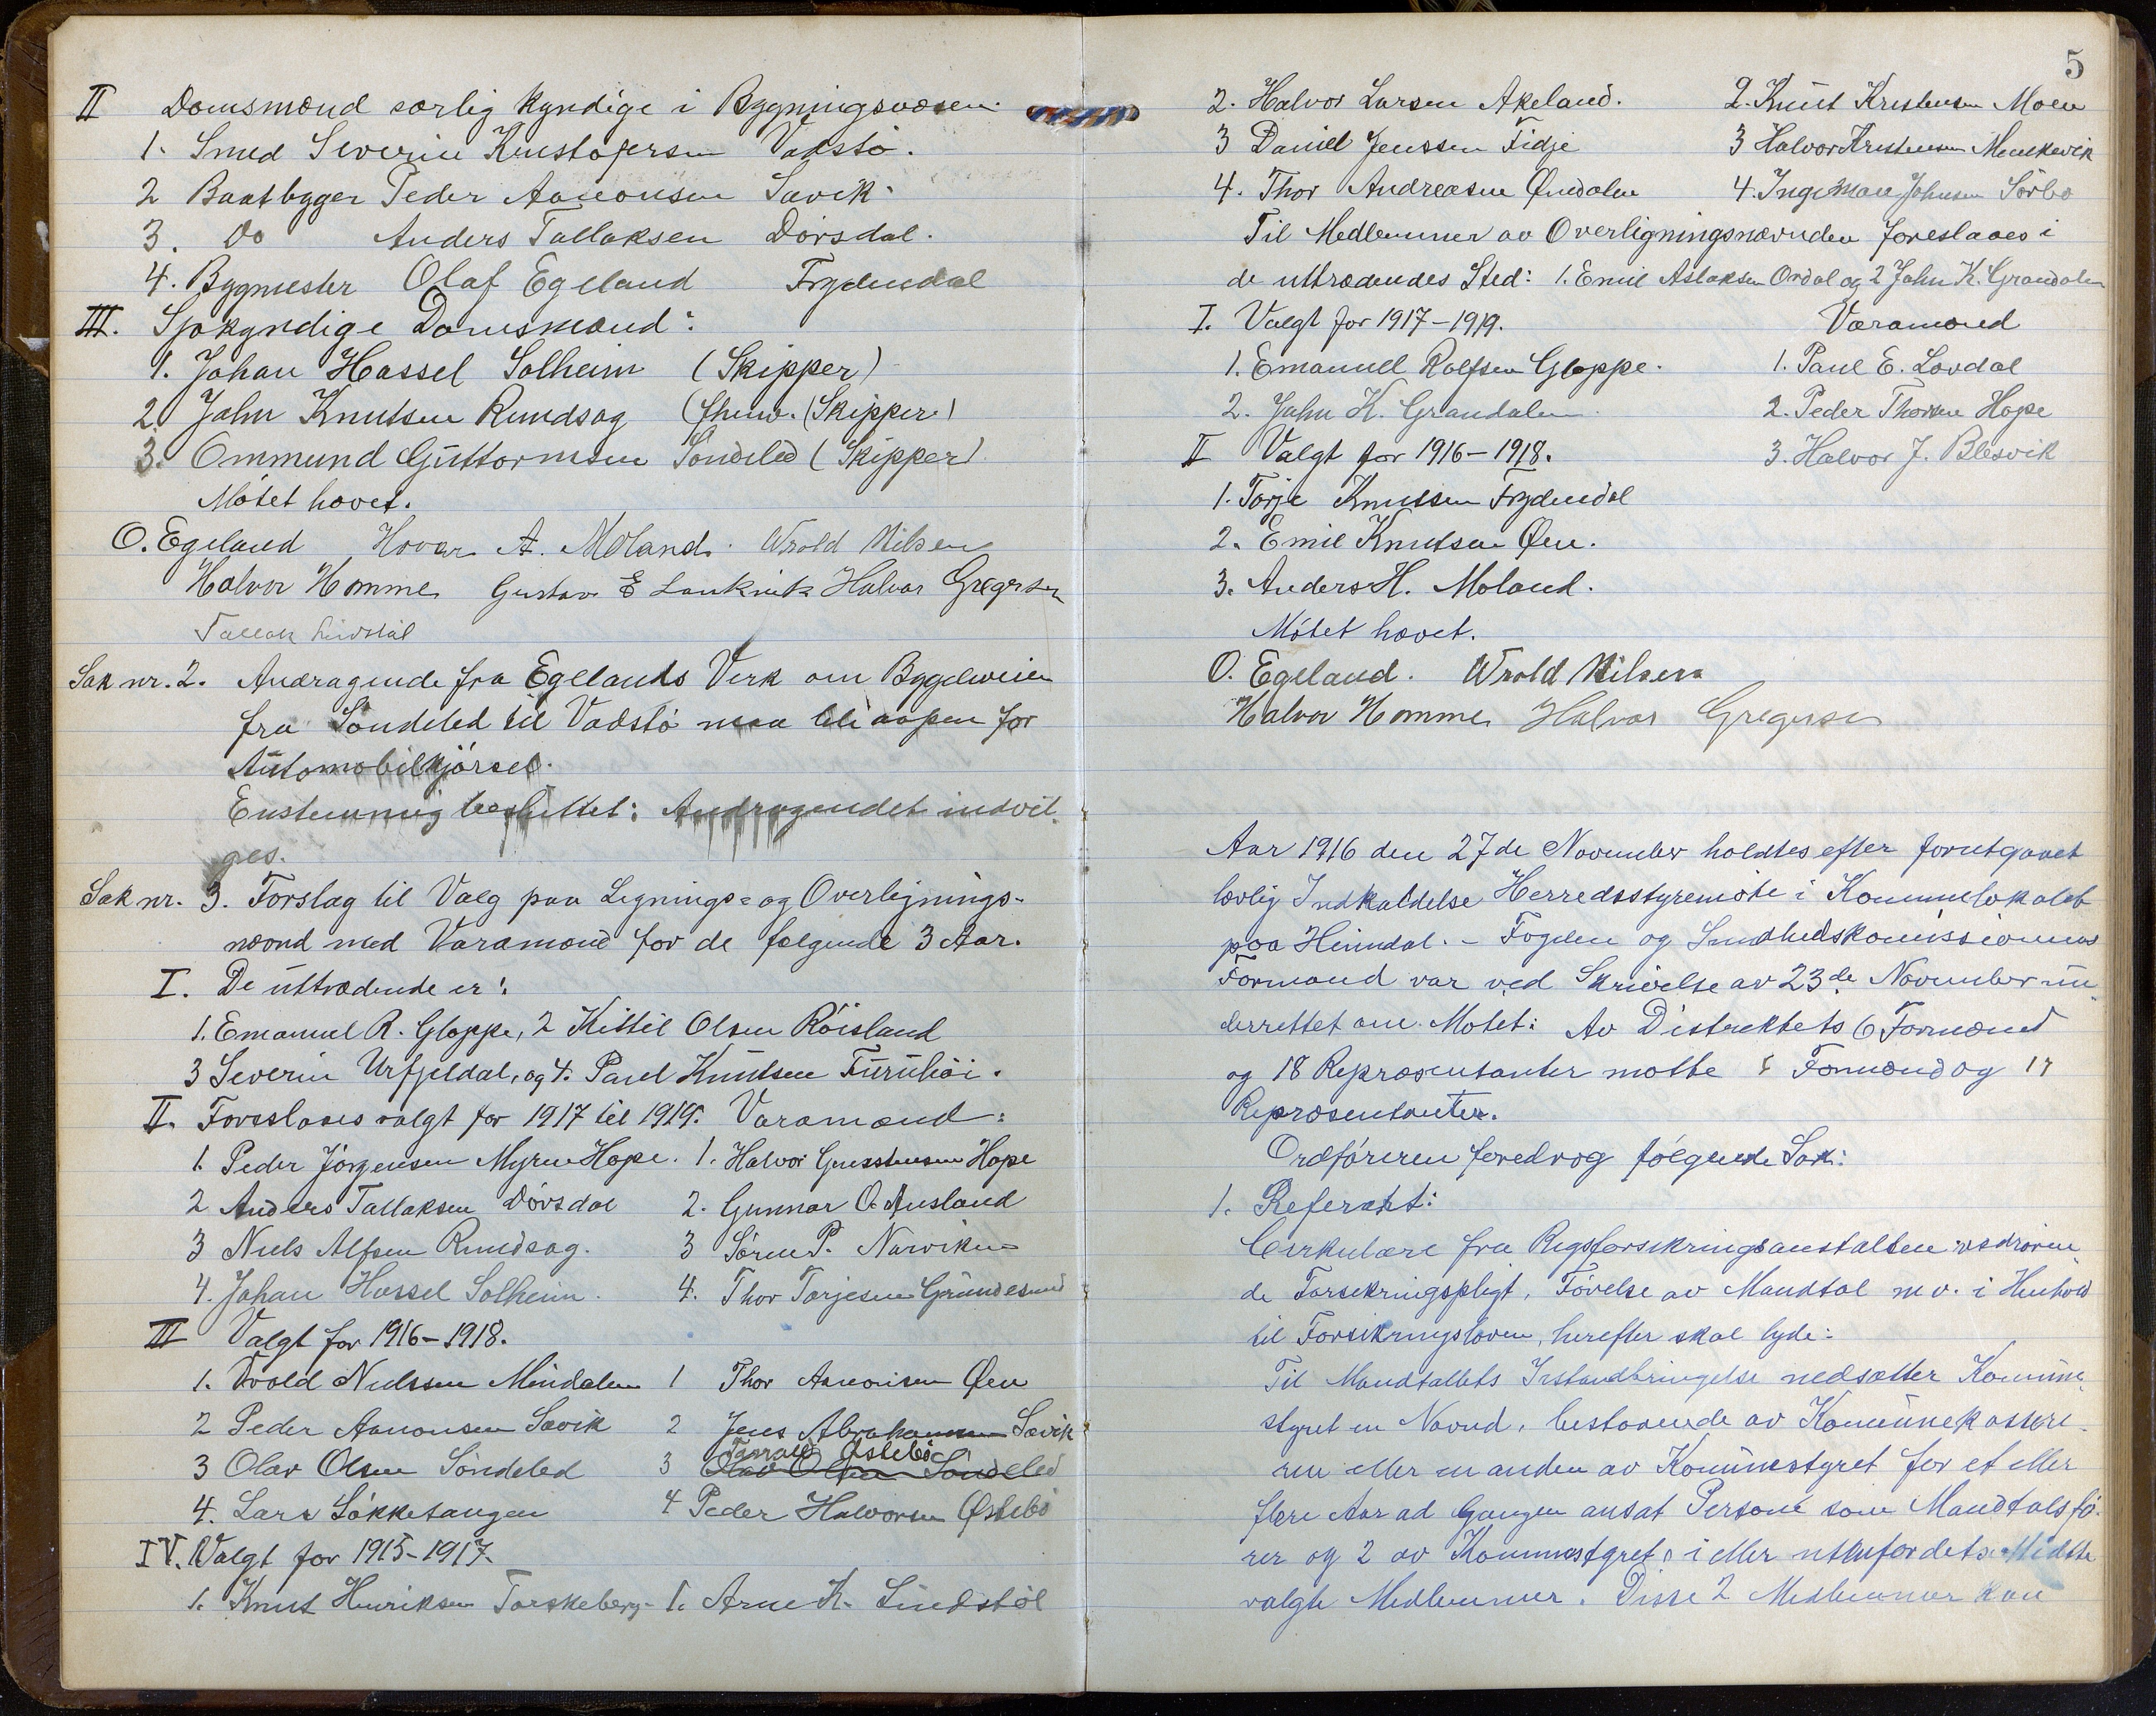 II Domsmænd særlig kyndige i Bygningsvæsen.
1. Smed Severin Kristofersen Vadstö.
2 Baatbygger Peder Aanonsen Savik.
3. Do Anders Tallaksen Dörsdal.
4. Bygmester Olaf Egeland Frydendal
III. Sjökyndige Domsmænd:
1. Johan Hassel Solheim (Skipper)
2 John Knutsen Rundsag (fhenv. Skipper)
3. Ommund Guttormsen Söndeled (Skipper)
Mötet hævet.
O. Egeland Hovar A. Moland. Wrold Nilsen
Halvor Homme Gustav E Halvor Gregersen
Tallak Lindstöl
Sak nr. 2. Andragende fra Egelands Verk om Bygdeveien
fra Söndeled til Vadstö maa bli aapen for
Automobilkjörsel.
Enstemmig besluttet: Andragendet indvil-
ges.
Sak nr. 3. Forslag til Valg paa Lignings- og Overlignings-
nævnd med Varamænd for de følgende 3 Aar.
I. De uttrædende er:
1. Emanuel R. Gloppe, 2 Kittil Olsen Röisland
3 Severin Urfjeldal, og 4. Paul Knutsen Furuhöi.
II. Foreslaaes valgt for 1917 til 1919. Varamænd:
1. Peder Jörgensen Myren Hope. 1. Halvor Hope
2 Anders Tallaksen Dörsdal 2. Gunnar O. Ausland
3 Niels Alfsen Rundsag. 3 Sören P. Narviken
4. Johan Hassel Solheim. 4. Thor Torjesen Grundesund
III Valgt for 1916-1918.
1. Wrold Nielssen Mindalen 1 Thor Aanonsen Øen
2 Peder Aanonsen Savik 2 Jens Abrahamsen Savik
Tarald Østebö
3 Olav Olsen Söndeled 3 Olav Olsen Söndeled
4. Lars Løkketangen 4 Peder Halvorsen Østebö
IV. Valgt for 1915-1917.
1. Knut Henriksen Torskeberg - 1. Arne K. Lindstöl
5
2. Halvor Larsen Akeland. 2. Knut Kristensen Moen
3 Daniel Jenssen Fidje 3 Halvor Kristensen
4. Thor Andreasen Øindalen 4. Ingeman Johnsen Sörbö
Til Medlemmer av Overligningsnævnden foreslaaes i
de uttrædendes Sted: 1. Emil Aslaksen Ordal og 2 John K. Grandalen
I. Valgt for 1917-1919. Varamænd
1. Emanuel Rolfsen Gloppe. 1. Paul E. Lovdal
2. John K. Grandalen. 2. Peder Thorsen Hope
II Valgt for 1916-1918. 3. Halvor J. Blesvik
1. Torje Knutsen Frydendal
2. Emil Knutsen Øen.
3. Anders H. Moland.
Mötet hævet.
O. Egeland. Wrold Nilsen
Halvor Homme Halvor Gregersen
Aar 1916 den 27de November holdtes efter forutgaaet
lovlig Indkaldelse Herredsstyremöte i Kommunelokalet
paa Heimdal. - Fogden og Sundhedskomissionens
Formand var ved Skrivelse av 23de November un-
derrettet om Mötet: Av Distriktets 6 Formænd
og 18 Repræsentanter mötte 5 Formænd og 17
Repræsentanter.
Ordföreren foredrog fölgende Sak:
1. Referat:
Cirkulære fra Rigsforsikringsanstalten vedrören-
de Forsikringspligt, Förelse av Mandtal m.v. i Henhold
til Forsikringsloven, herefter skal lyde:
Til Mandtallets Istandbringelse nedsætter Kommune-
styret en Nævnd, bestaaende av Kommunekassere-
ren eller en anden av Kommunestyret for et eller
flere Aar ad Gangen ansat Person som Mandtalsfö-
rer og 2 av Kommunestyret i eller utenfor dets Midte
valgte Medlemmer. Disse 2 Medlemmer kan